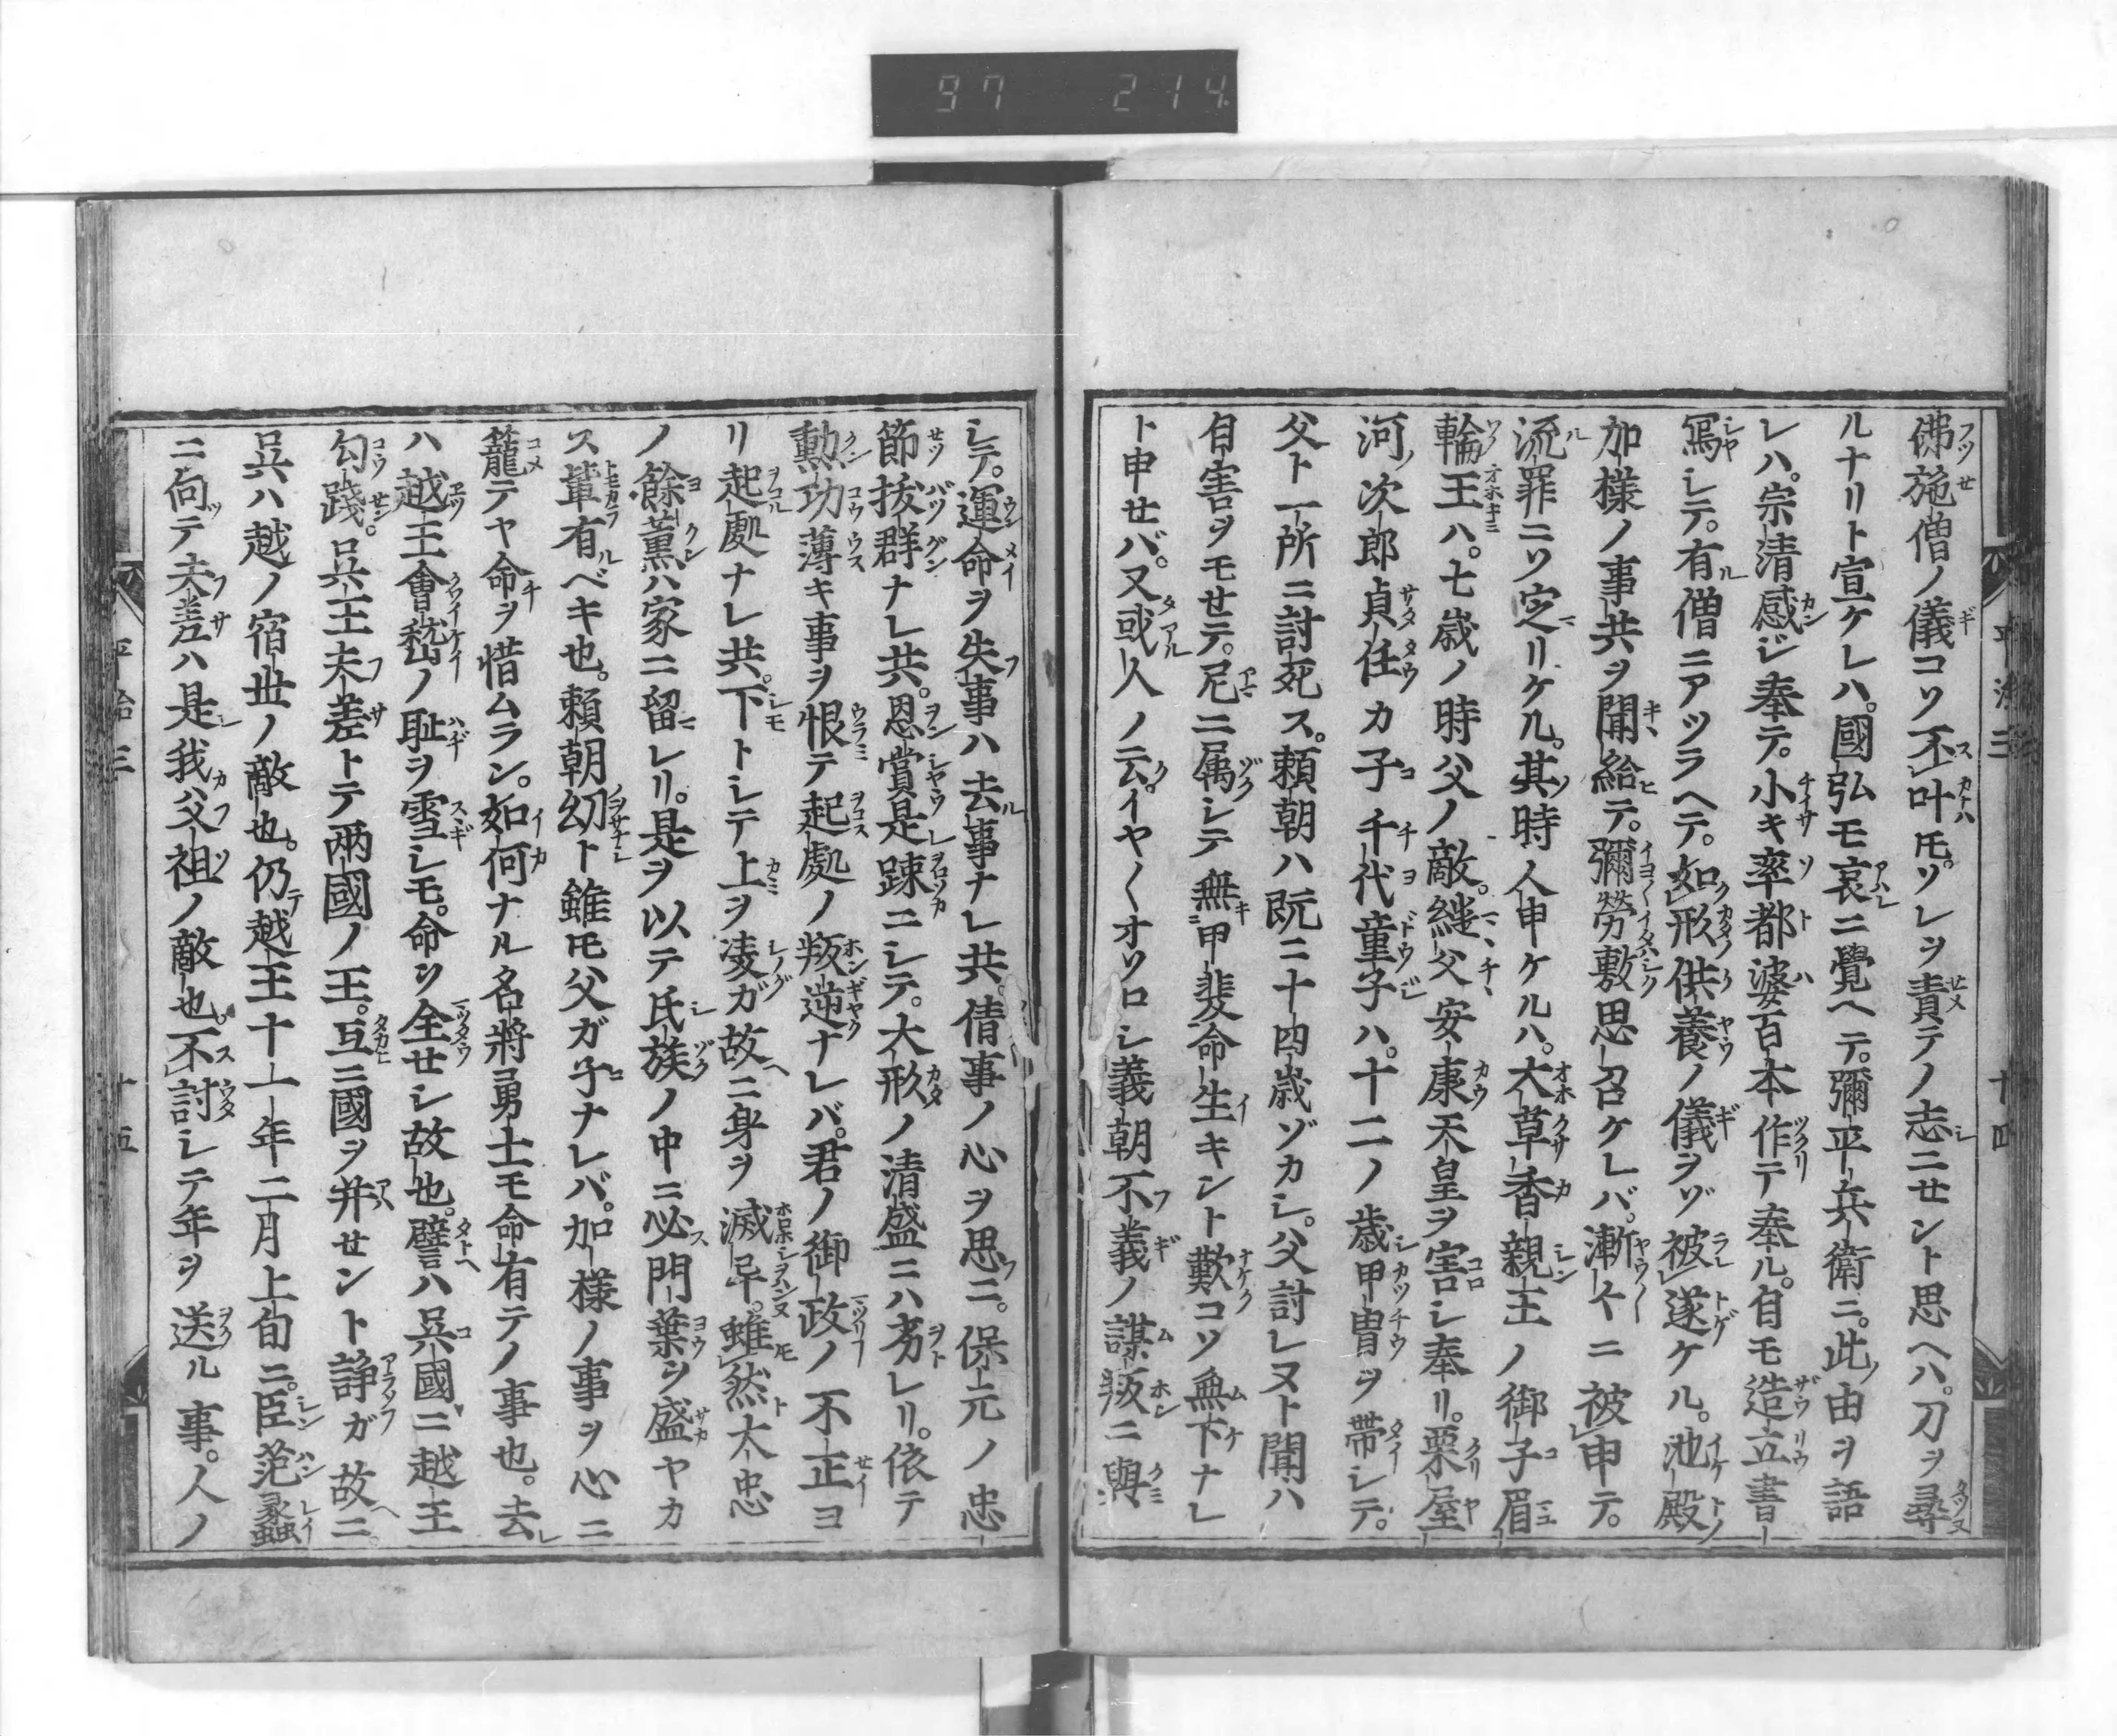 97 214
佛施僧ノ儀コソ不叶トモ。ソレヲ責テノ志ニセント思ヘハ。刀ヲ尋
ルナリト宣ケレハ。國弘モ哀ニ覺ヘテ。彌平兵衛ニ。此由ヲ語
レハ。宗清感ジ奉テ。小キ率都婆百本作テ奉ル。自モ造立書
寫シテ。有僧ニアツラヘテ。如形供養ノ儀ヲゾ被遂ケル。池殿
加樣ノ事共ヲ聞給テ。彌勞敷思召ケレバ。漸々ニ被申テ。
流罪ニソ定リケル。其時人申ケルハ。大草香親王ノ御子眉
輪王ハ。七歳ノ時父ノ敵。継父安康天皇ヲ害シ奉リ。栗屋
河ノ次郎貞任カ子千代童子ハ。十二ノ歳甲冑ヲ帶シテ。
父ト一所ニ討死ス。頼朝ハ既ニ十四歳ゾカシ。父討レヌト聞ハ
自害ヲモセテ。尼ニ属シテ無甲斐命生キント歎コソ無下ナレ
ト申セバ。又或人ノ云。イヤ〱オソロシ義朝不義ノ謀叛ニ與
シテ。運命ヲ失事ハ去事ナレ共。倩事ノ心ヲ思ニ。保元ノ忠
節抜群ナレ共。恩賞是踈ニシテ。大形ノ清盛ニハ劣レリ。依テ
勲功薄キ事ヲ恨テ起處ノ叛逆ナレバ。君ノ御政ノ不正ヨ
リ起處ナレ共。下トシテ上ヲ凌ガ故ニ身ヲ滅畢。雖然大忠
ノ餘薫ハ家ニ留レリ。是ヲ以テ氏族ノ中ニ必門葉ヲ盛ヤカ
ス輩有ベキ也。頼朝幼ト雖モ父ガ子ナレバ。加樣ノ事ヲ心ニ
籠テヤ命ヲ惜ムラン。如何ナル名將勇士モ命有テノ事也。去
ハ越王會嵆ノ耻ヲ雪シモ。命ヲ全セシ故也。譬ハ呉國ニ越王
勾踐。呉王夫差トテ两國ノ王。互ニ國ヲ并セント諍ガ故ニ。
呉ハ越ノ宿世ノ敵也。仍越王十一年二月上旬ニ。臣范蠡
ニ向テ夫差ハ是我父祖ノ敵也。不討シテ年ヲ送ル事。人ノ
平治三 十四
平治三 十五